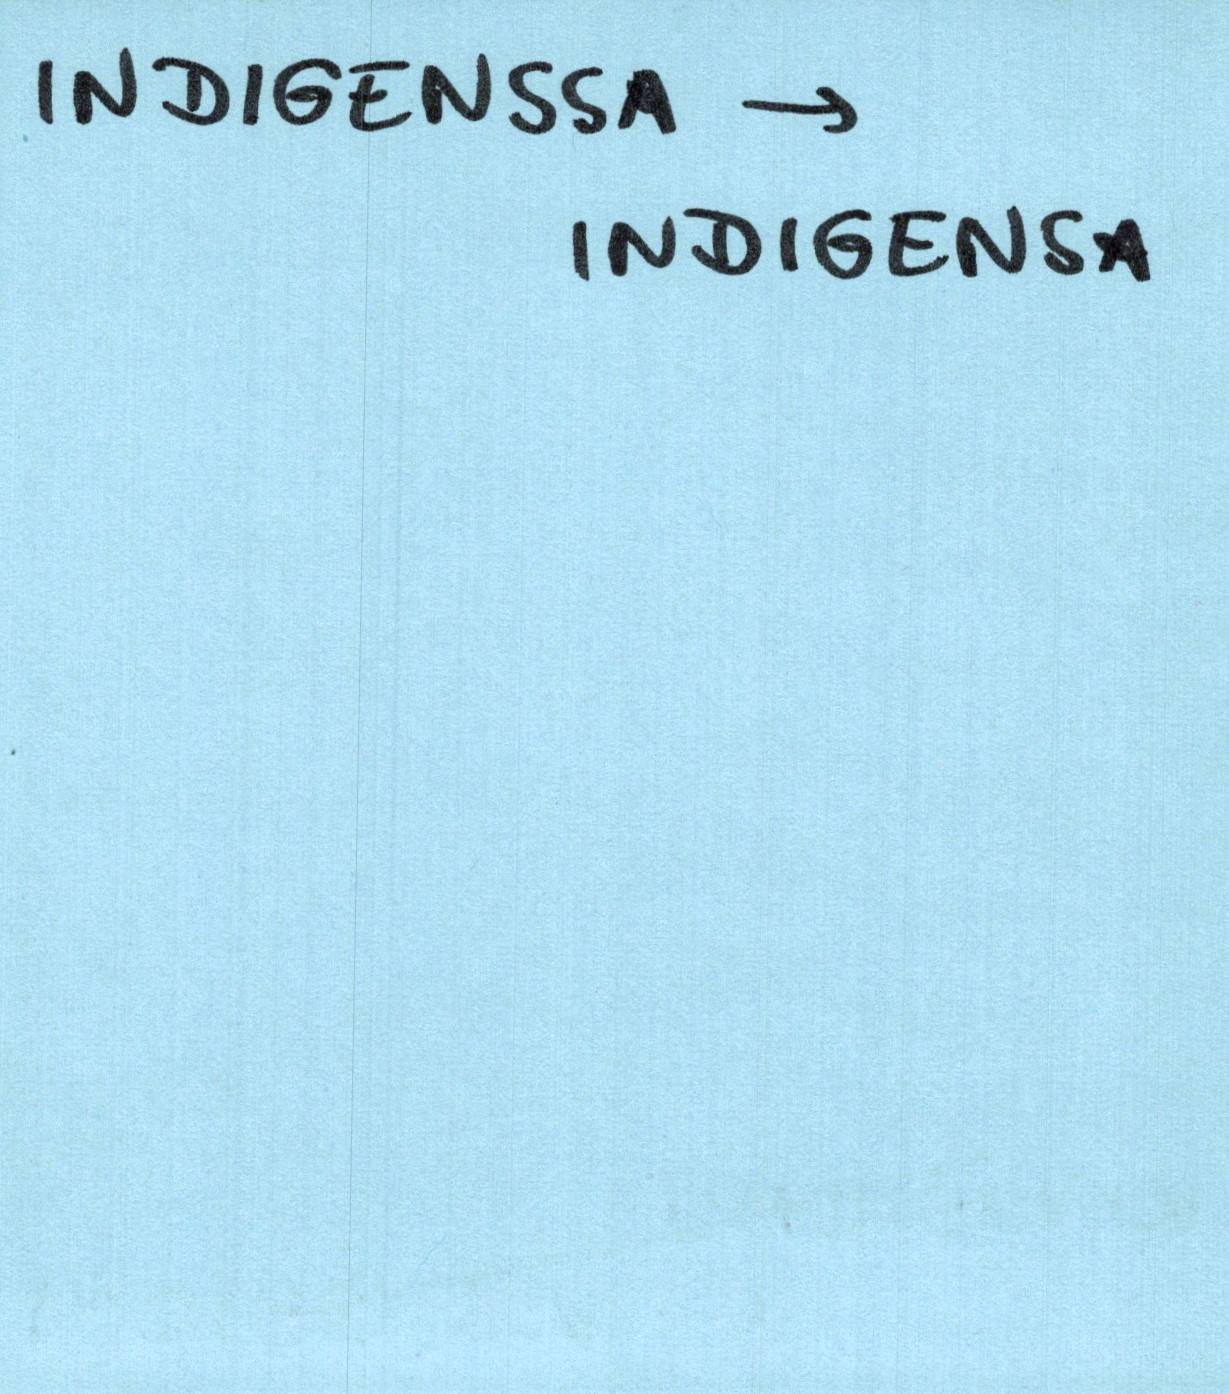 INDIGENSSA →
INDIGENSA